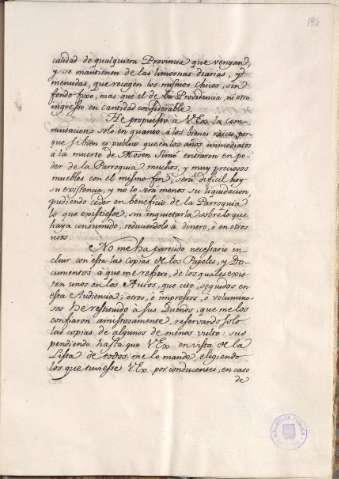 calidad de qualquiera Provincia que vengan,
y se mantienen de las limosnas diarias, y
menudas, que recogen los mismos Clavos, sin
fondo fixo, mas que el de la Providencia, ni otro
ingresso en cantidad considerable.
He propuesto à V.Exa. la con-
mutacion solo en quanto à los bienes raices, por-
que si bien es publico que en los años inmediatos
à la muerte de Mosen Simó entraron en po-
der de la Parroquia muchos, y muy preciosos
muebles con el mismo fin, será dificil hoy
su existencia, y no lo será menos su liquidacion
pudiendo ceder en beneficio de la Parroquia
lo que existiesse, sin inquietarla sobre lo que
haya consumido, reduciendolo à dinero, ò en otros
usos.
No me ha parecido necessario in-
cluir con esta las copias de los Papeles, y Do-
cumentos à que me refiero, de los quales exis-
ten unos en los Autos, que cito, seguidos en
esta Audiencia; otros, ò impressos, ò volumino-
sos he restituido à sus Dueños, que me los
confiaron amistosamente, reservando solo
las copias de algunos de menos vulto: sus-
pendiendo hasta que V.Ex. en vista de la
Lista de todos me lo mande, eligiendo
los que tuviesse V.Ex. por conducentes, en caso
de